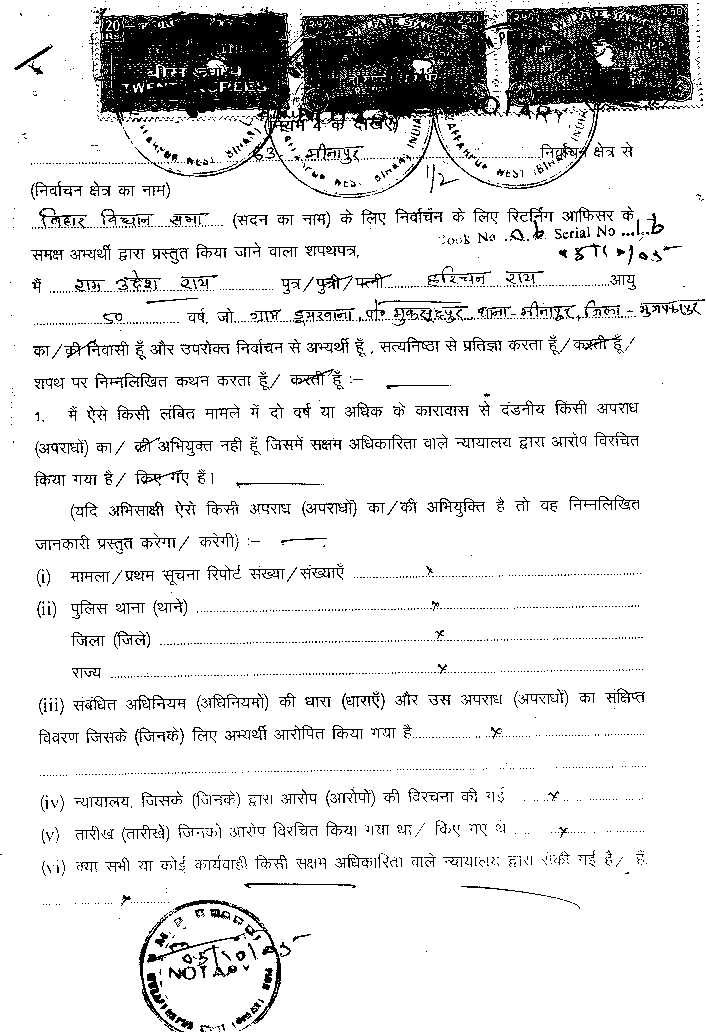 20
250
250
बीस रुपये
TWENTY RUPEES
NOTARY
नियम 4 के देखिए
93 मीनापुर निर्वाचन क्षेत्र से
1/2
(निर्वाचन क्षेत्र का नाम)
बिहार विधान सभा (सदन का नाम) के लिए निर्वाचन के लिए रिटर्निंग आफिसर के
समक्ष अभ्यर्थी द्वारा प्रस्तुत किया जाने वाला शपथपत्र,
Book No Serial No
मैं राम उदेश राय पुत्र/पुत्री/पत्नी हरिचन राय आयु
50 वर्ष, जो ग्राम डुमरबाना, पो० मुकसुदपुर, थाना-मीनापुर, जिला-मुजफ्फरपुर
का/की निवासी हूँ और उपरोक्त निर्वाचन से अभ्यर्थी हूँ, सत्यनिष्ठा से प्रतिज्ञा करता हूँ/करती हूँ/
शपथ पर निम्नलिखित कथन करता हूँ/ करती हूँ :–
1. मैं ऐसे किसी लंबित मामले में दो वर्ष या अधिक के कारावास से दंडनीय किसी अपराध
(अपराधों) का/ की अभियुक्त नही हूँ जिसमें सक्षम अधिकारिता वाले न्यायालय द्वारा आरोप विरचित
किया गया है/ किए गए हैं।
(यदि अभिसाक्षी ऐसे किसी अपराध (अपराधों) का/की अभियुक्ति है तो वह निम्नलिखित
जानकारी प्रस्तुत करेगा/ करेगी) :–
(i) मामला/प्रथम सूचना रिपोर्ट संख्या/संख्याएँ x
(ii) पुलिस थाना (थाने) x
जिला (जिले) x
राज्य x
(iii) संबंधित अधिनियम (अधिनियमों) की धारा (धाराएँ) और उस अपराध (अपराधों) का संक्षिप्त
विवरण जिसके (जिनके) लिए अभ्यर्थी आरोपित किया गया है x
(iv) न्यायालय, जिसके (जिनके) द्वारा आरोप (आरोपों) की विरचना की गई x
(v) तारीख (तारीखें) जिनको आरोप विरचित किया गया था/ किए गए थे x
(vi) क्या सभी या कोई कार्यवाही किसी सक्षम अधिकारिता वाले न्यायालय द्वारा रोकी गई है/ हैं
x
NOTARY